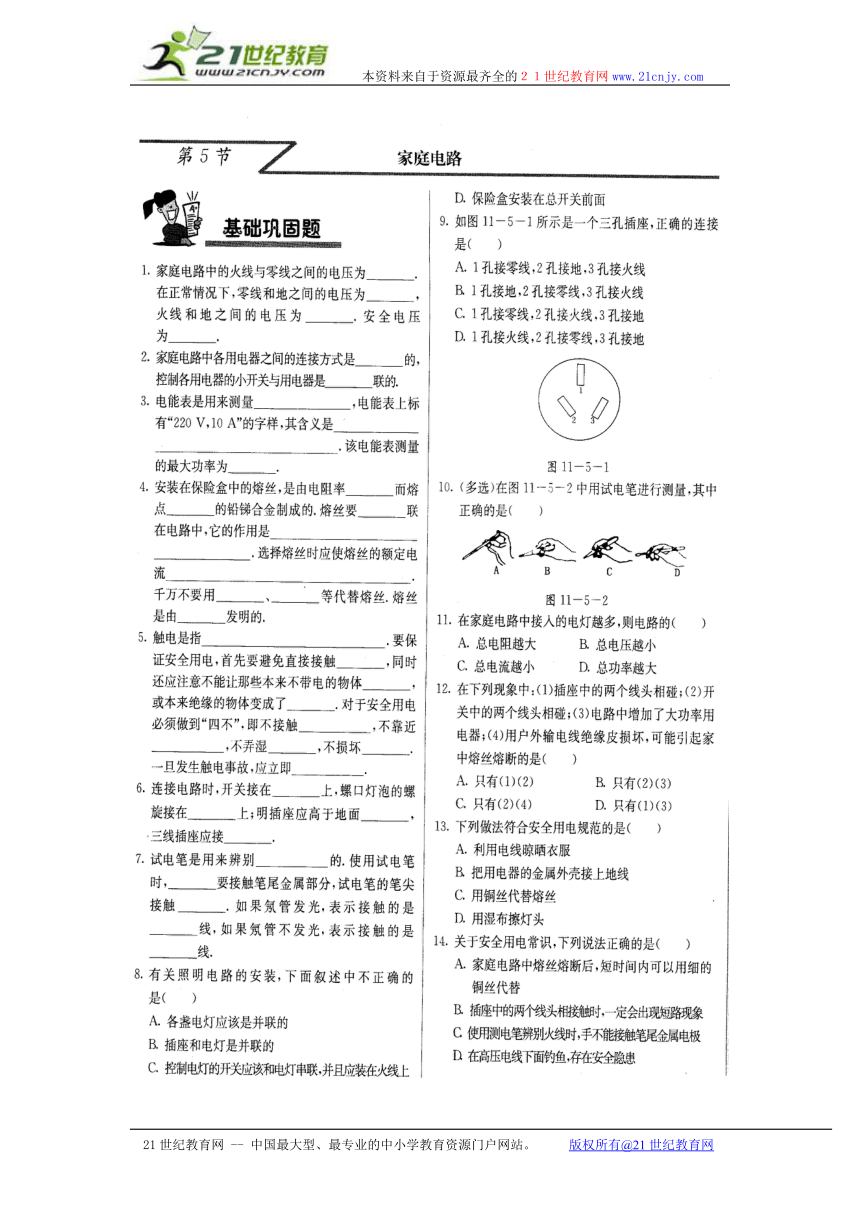 21世纪教育
www.21cnjy.com
本资料来自于资源最齐全的２１世纪教育网www.21cnjy.com
第5节
家庭电路
基础巩固题
1. 家庭电路中的火线与零线之间的电压为______.
在正常情况下,零线和地之间的电压为______,
火线和地之间的电压为______.安全电压
为______.
2. 家庭电路中各用电器之间的连接方式是______的,
控制各用电器的小开关与用电器是______联的.
3. 电能表是用来测量____________,电能表上标
有“220 V,10 A”的字样,其含义是____________
______________________.该电能表测量
的最大功率为______.
4. 安装在保险盒中的熔丝,是由电阻率______而熔
点______的铅锑合金制成的.熔丝要______联
在电路中,它的作用是__________________
____________.选择熔丝时应使熔丝的额定电
流______________________________.
千万不要用______、______等代替熔丝.熔丝
是由______发明的.
5. 触电是指______________________.要保
证安全用电,首先要避免直接接触______,同时
还应注意不能让那些本来不带电的物体______,
或本来绝缘的物体变成了______.对于安全用电
必须做到“四不”,即不接触_________,不靠近
_________,不弄湿______,不损坏______.
一旦发生触电事故,应立即_________.
6. 连接电路时,开关接在______上,螺口灯泡的螺
旋接在______上;明插座应高于地面______,
三线插座应接______.
7. 试电笔是用来辨别_________的.使用试电笔
时,______要接触笔尾金属部分,试电笔的笔尖
接触______.如果氖管发光,表示接触的是
______线,如果氖管不发光,表示接触的是
______线.
8. 有关照明电路的安装,下面叙述中不正确的
是(　　)
A. 各盏电灯应该是并联的
B. 插座和电灯是并联的
C. 控制电灯的开关应该和电灯串联,并且应装在火线上
D. 保险盒安装在总开关前面
9. 如图11-5-1所示是一个三孔插座,正确的连接
是(　　)
A. 1孔接零线,2孔接地,3孔接火线
B. 1孔接地,2孔接零线,3孔接火线
C. 1孔接零线,2孔接火线,3孔接地
D. 1孔接火线,2孔接零线,3孔接地
1
2 3
图11-5-1
10. (多选)在图11-5-2中用试电笔进行测量,其中
正确的是(　　)
A B C D
图11-5-2
11. 在家庭电路中接入的电灯越多,则电路的(　　)
A. 总电阻越大 B. 总电压越小
C. 总电流越小 D. 总功率越大
12. 在下列现象中:(1)插座中的两个线头相碰;(2)开
关中的两个线头相碰;(3)电路中增加了大功率用
电器;(4)用户外输电线绝缘皮损坏,可能引起家
中熔丝熔断的是(　　)
A. 只有(1)(2) B. 只有(2)(3)
C. 只有(2)(4) D. 只有(1)(3)
13. 下列做法符合安全用电规范的是(　　)
A. 利用电线晾晒衣服
B. 把用电器的金属外壳接上地线
C. 用铜丝代替熔丝
D. 用湿布擦灯头
14. 关于安全用电常识,下列说法正确的是(　　)
A. 家庭电路中熔丝熔断后,短时间内可以用细的
铜丝代替
B. 插座中的两个线头相接触时,一定会出现短路现象
C. 使用测电笔辨别火线时,手不能接触笔尾金属电极
D. 在高压电线下面钓鱼,存在安全隐患
21世纪教育网 -- 中国最大型、最专业的中小学教育资源门户网站。 版权所有@21世纪教育网